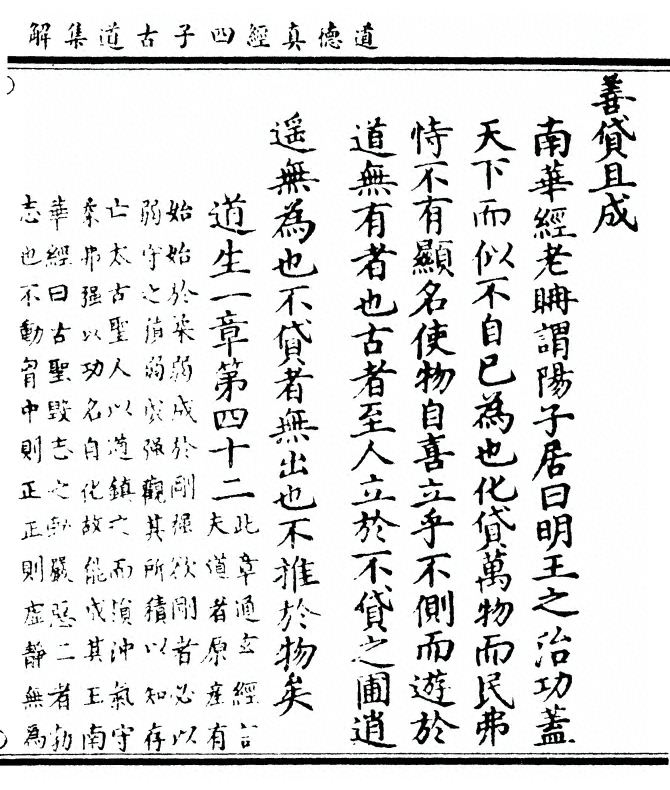 道德真經四子古道集解
善貸且成
南華經老聃謂陽子居曰明王之治功蓋
天下而似不自已為也化貸萬物而民弗
恃不有顯名使物自喜立乎不側而遊於
道無有者也古者至人立於不貸之圃逍
遥無為也不貸者無出也不推於物矣
道生一章第四十二
此章通玄經言
夫道者原產有
始始於柔弱成於剛強欲剛者必以
弱守之積弱成强觀其所積以知存
亡太古聖人以道鎮之而損沖氣守
柔弗强以功名自化故能成其王南
華經曰古聖毀志之勃嚴惡二者勃
志也不動胷中則正正則虛靜無為